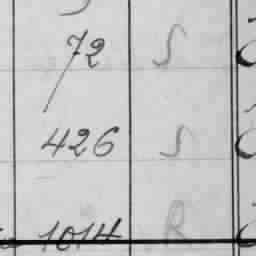 72 S
426 S
1014 R